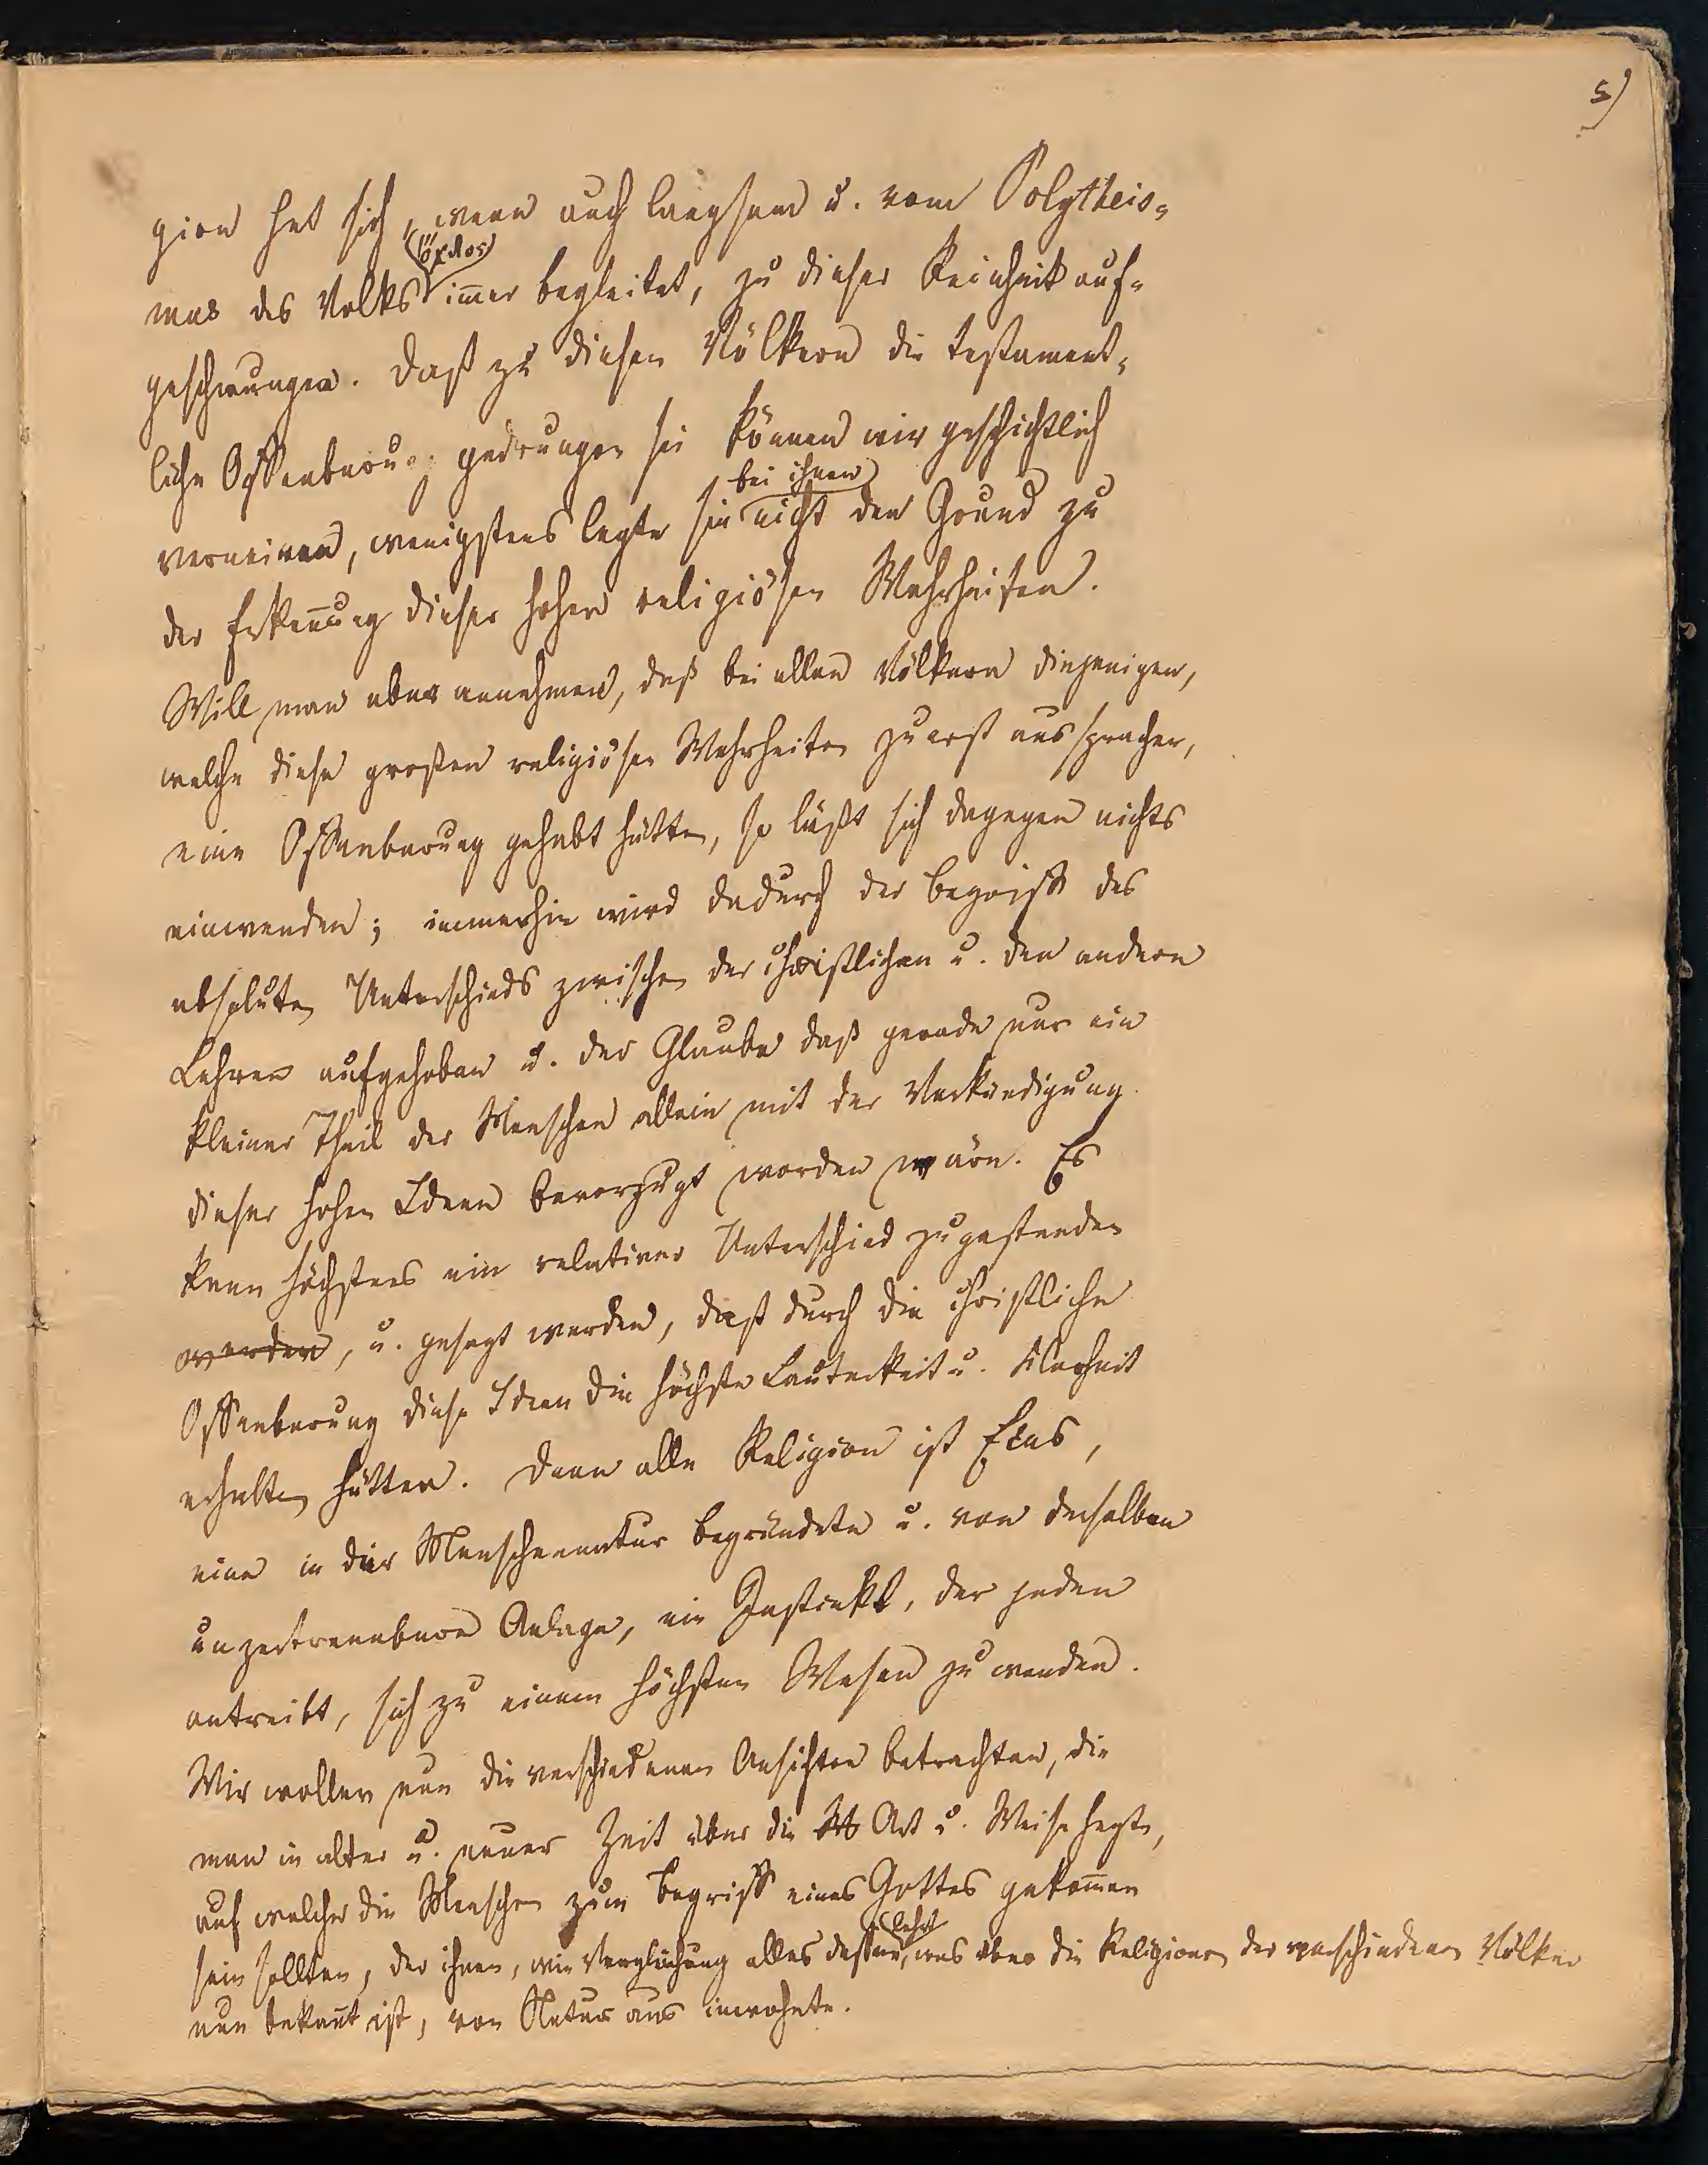 5)
gion hat sich, wenn auch langsam u. vom Polytheis-
(ὄχλος)
mus des Volks im̄er begleitet, zu dieser Reinheit auf-
geschwungen. Daß zu diesen Völkern die testament-
liche Offenbarung gedrungen sei können wir geschichtlich
bei ihnen
verneinen, wenigstens legte sie nicht den Grund zu
der Erken̄ung dieser hohen religiösen Wahrheiten.
Will man aber annehmen, daß bei allen Völkern diejenigen,
welche diese großen religiösen Wahrheiten zuerst aussprachen,
eine Offenbarung gehabt hätten, so läßt sich dagegen nichts
einwenden; immerhin wird dadurch der Begriff des
absoluten Unterschieds zwischen der christlichen u. den andern
Lehren aufgehoben u. der Glaube daß gerade nur ein
kleiner Theil der Menschen allein mit der Verkündigung
dieser hohen Ideen bevorzugt worden wäre. Es
kann höchstens ein relativer Unterschied zugestanden
werden, u. gesagt werden, daß durch die christliche
Offenbarung diese Ideen die höchste Lauterkeit u. Klarheit
erhalten hätten. Denn alle Religion ist Eins,
eine in der Menschennatur begründete u. von derselben
unzertrennbare Anlage, ein Instinkt, der jeden
antreibt, sich zu einem höchsten Wesen zu wenden.
Wir wollen nun die verschiedenen Ansichten betrachten, die
man in alter u. neuer Zeit über die Art u. Weise hegte,
auf welcher die Menschen zum Begriff eines Gottes gekom̄en
lehrt
sein sollten, der ihnen, wie Vergleichung alles dessen, was über die Religionen der verschiedenen Völker
nun bekan̄t ist, von Natur aus inwohnte.